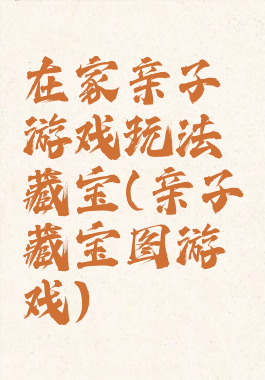 在家亲子
游戏玩法
藏宝(亲子
藏宝图游
戏)